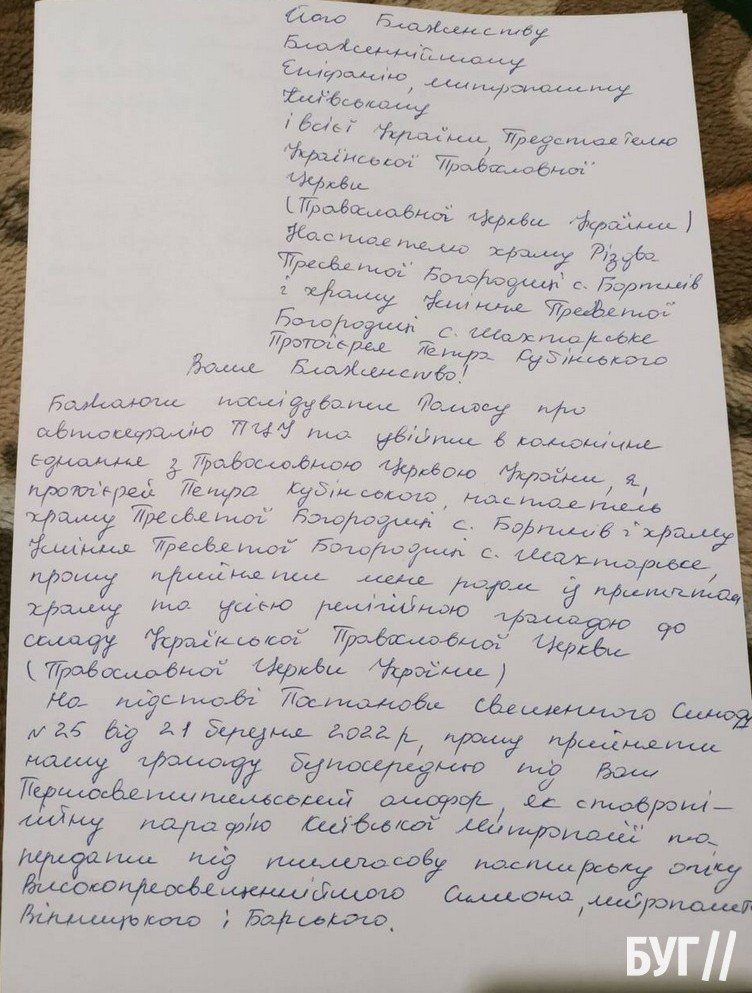 Його Блаженству
Блаженнійшому
Епіфанію, митрополиту
Київському
і всієї України, Предстоятелю
Української Православної
Церкви
(Православної Церкви України)
Настоятелю храму Різдва
Пресвятої Богородиці с. Бортнів
і храму Успіння Пресвятої
Богородиці с. Шахтарське
Протоієрея Петра Кубінського
Ваше Блаженство!
Бажаючи послідувати Томосу про
автокефалію ПЦУ та увійти в канонічне
єднання з Православною Церквою України, я,
протоієрей Петра Кубінського, настоятель
храму Пресвятої Богородиці с. Бортнів і храму
Успіння Пресвятої Богородиці с. Шахтарське,
прошу прийняти мене разом із притчтом
храму та усією релігійною громадою до
складу Української Православної Церкви
(Православної Церкви України)
На підставі Постанови Священного Синоду
№25 від 21 березня 2022 р, прошу прийняти
нашу громаду безпосередньо під Ваш
Першосвятительський омофор, як ставропі-
гійну парафію Київської Митрополії та
передати під тимчасову пастирську опіку
Високопреосвященнійшого Симеона, митрополита
Вінницького і Барського.
БУГ //